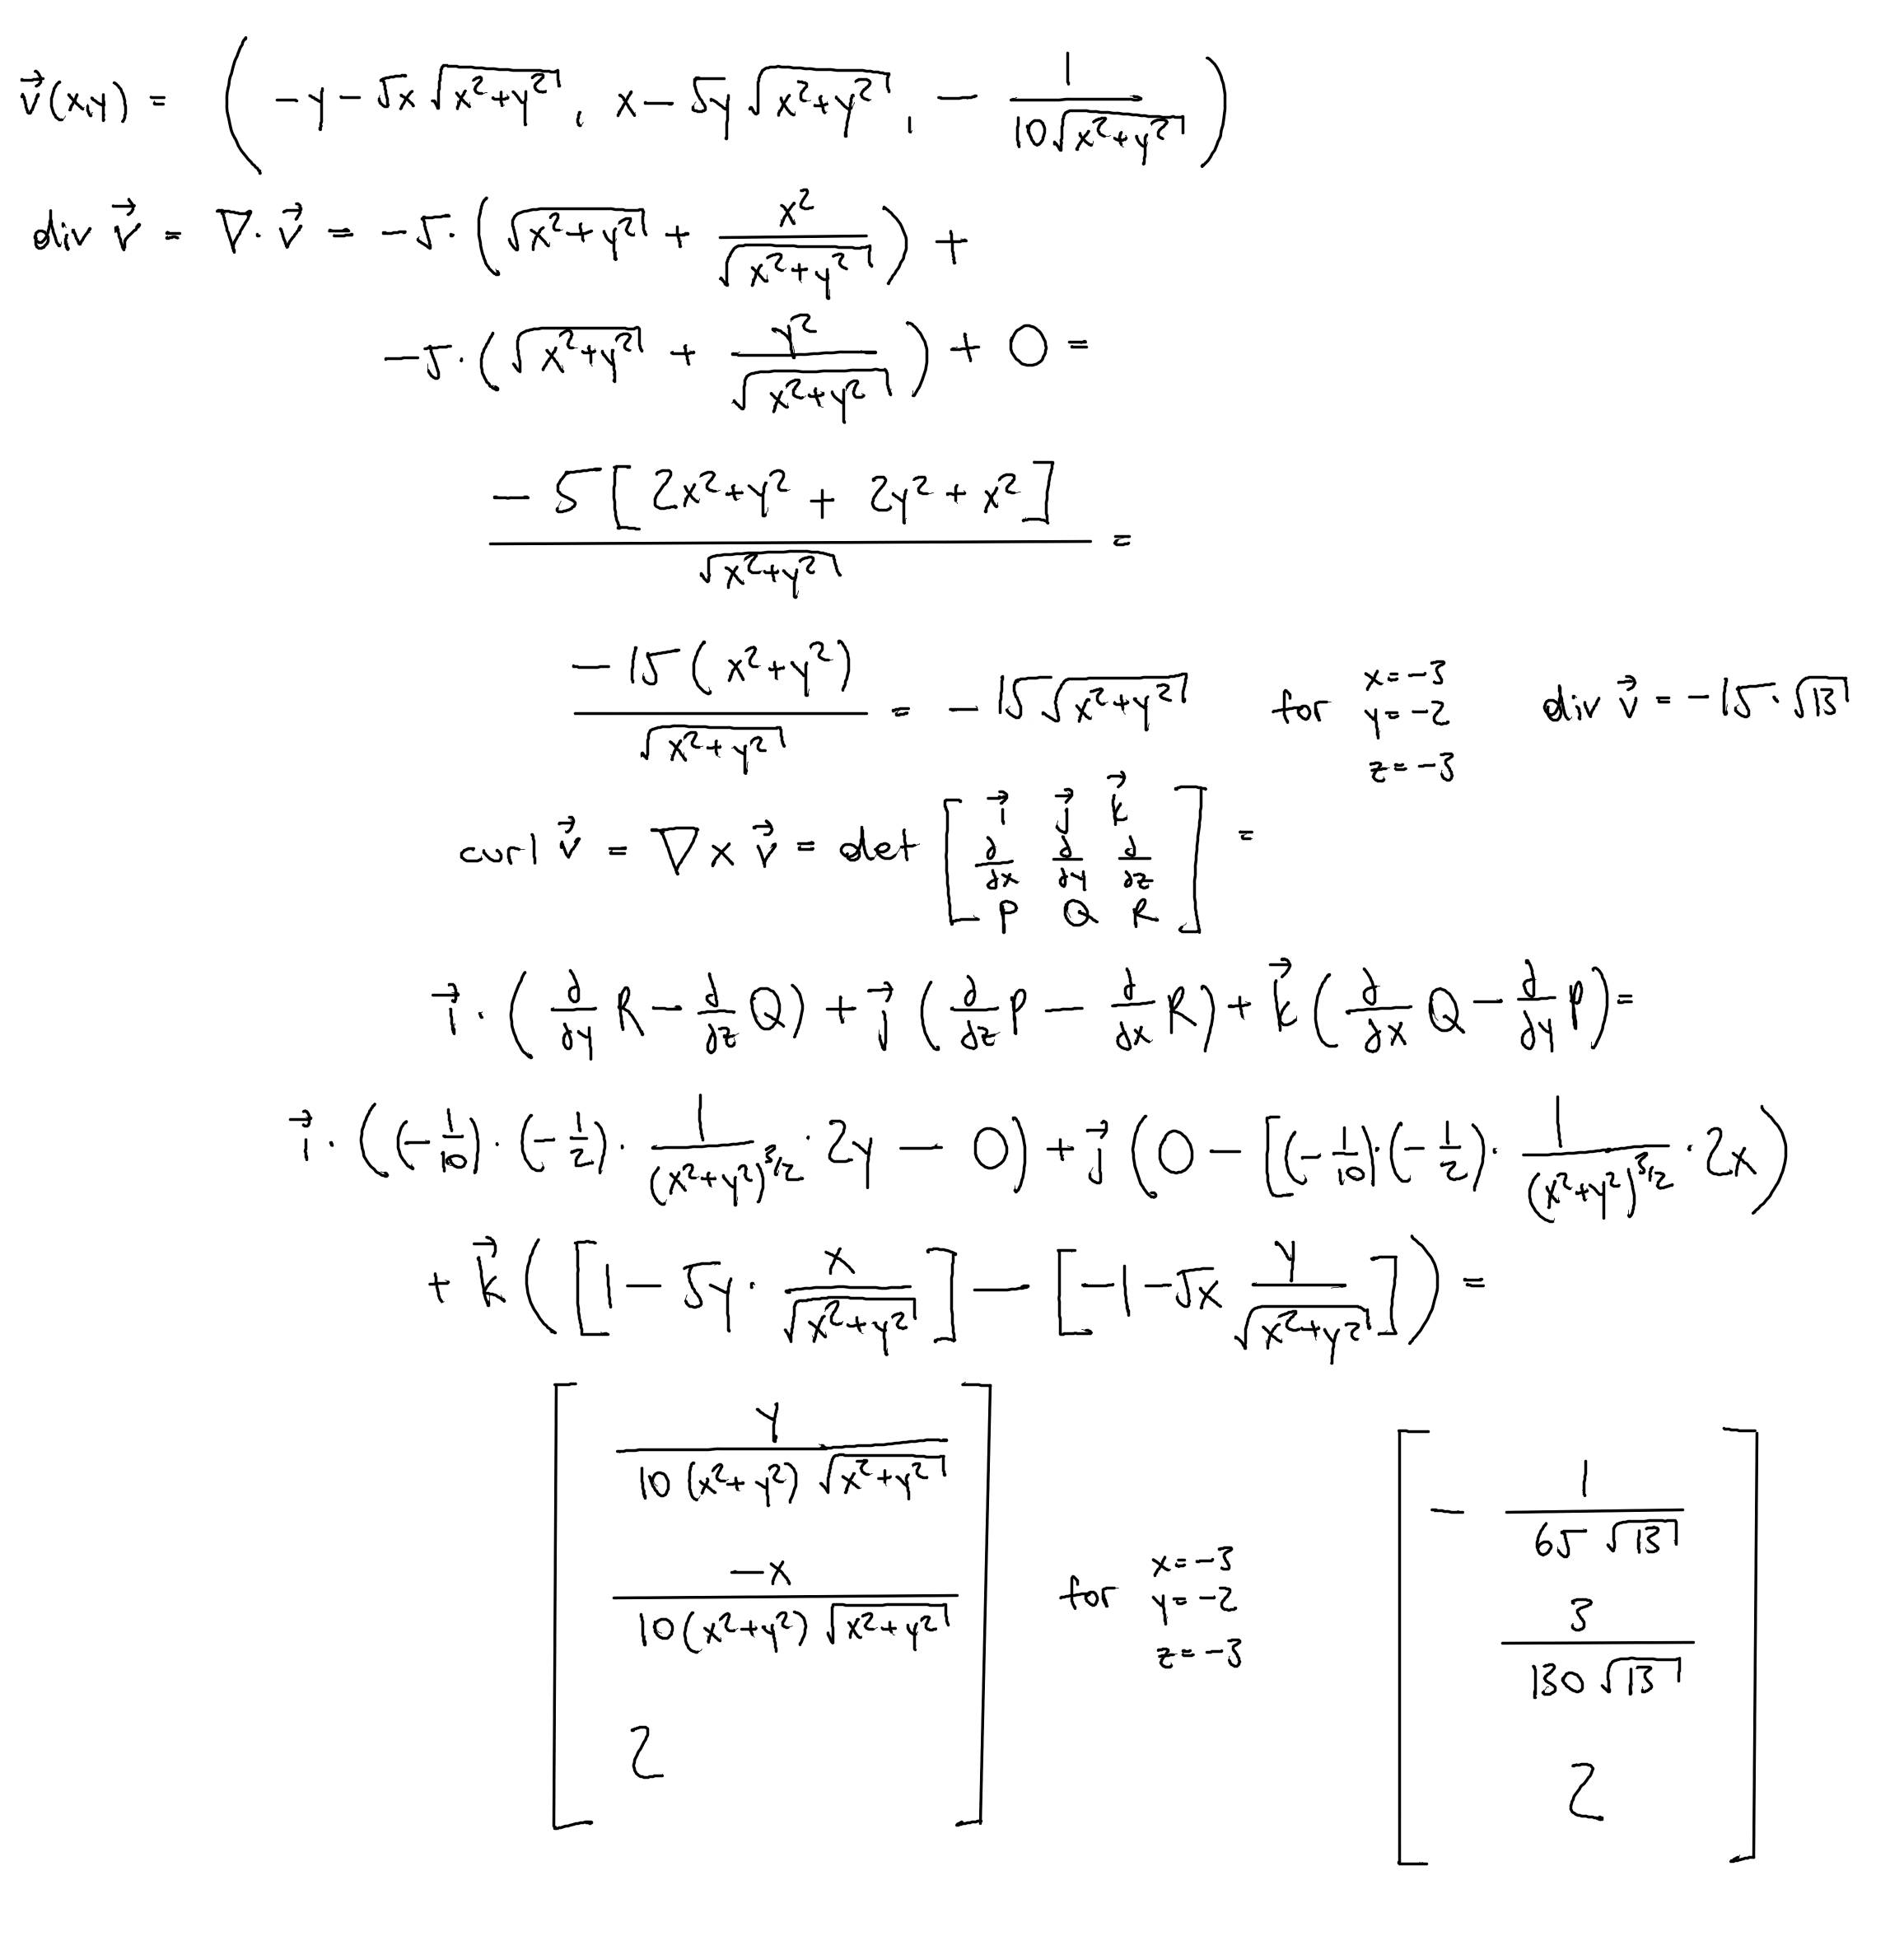 v⃗(x,y) = ( -y - 5x √(x²+y²) , x - 5y √(x²+y²) , - 1/(10√(x²+y²)) )
div v⃗ = ∇·v⃗ = -5·( √(x²+y²) + x²/√(x²+y²) ) +
-5·( √(x²+y²) + y²/√(x²+y²) ) + 0 =
-5[ 2x²+y² + 2y²+x² ] / √(x²+y²) =
-15(x²+y²) / √(x²+y²) = -15√(x²+y²) for x=-3 y=-2 z=-3 div v⃗ = -15·√13
curl v⃗ = ∇ × v⃗ = det [ i⃗ j⃗ k⃗ ; ∂/∂x ∂/∂y ∂/∂z ; P Q R ] =
i⃗·( ∂/∂y R - ∂/∂z Q ) + j⃗ ( ∂/∂z P - ∂/∂x R ) + k⃗ ( ∂/∂x Q - ∂/∂y P ) =
i⃗·( (-1/10)·(-1/2)· 1/(x²+y²)^(3/2) ·2y - 0 ) + j⃗ ( 0 - [ (-1/10)·(-1/2)· 1/(x²+y²)^(3/2) ·2x )
+ k⃗ ( [ 1 - 5y· x/√(x²+y²) ] - [ -1 - 5x y/√(x²+y²) ] ) =
[ y/(10(x²+y²)√(x²+y²)) ; -x/(10(x²+y²)√(x²+y²)) ; 2 ] for x=-3 y=-2 z=-3 [ -1/(65√13) ; 3/(130√13) ; 2 ]